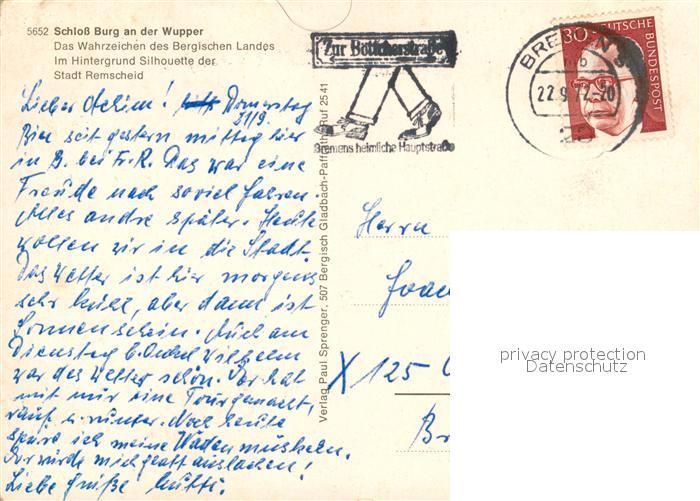 5652 Schloß Burg an der Wupper
Das Wahrzeichen des Bergischen Landes
Im Hintergrund Silhouette der
Stadt Remscheid
Lieber Achim! Donnerstag
21/9.
Bin seit gestern mittag hier
in B. bei Fr. R. Das war eine
Freude nach soviel Jahren.
Alles andre später. Heute
wollen wir in die Stadt.
Das Wetter ist hier morgens
sehr kühl, aber dann ist
Sonnenschein. Auch am
Dienstag b. Onkel Wilhelm
war das Wetter schön. Der hat
mit mir eine Tour gemacht,
rauf u. runter. Noch heute
spüre ich meine Wadenmuskeln.
Der würde mich glatt auslachen!
Liebe Grüße Mutti.
Verlag Paul Sprenger, 507 Bergisch Gladbach-Paffrath, Ruf 2541
Zur Böttcherstraße
Bremens heimliche Hauptstraße
BREMEN 5
22.9.72-20
28
30 DEUTSCHE BUNDESPOST
Herrn
Joa
X 125
Br
privacy protection
Datenschutz